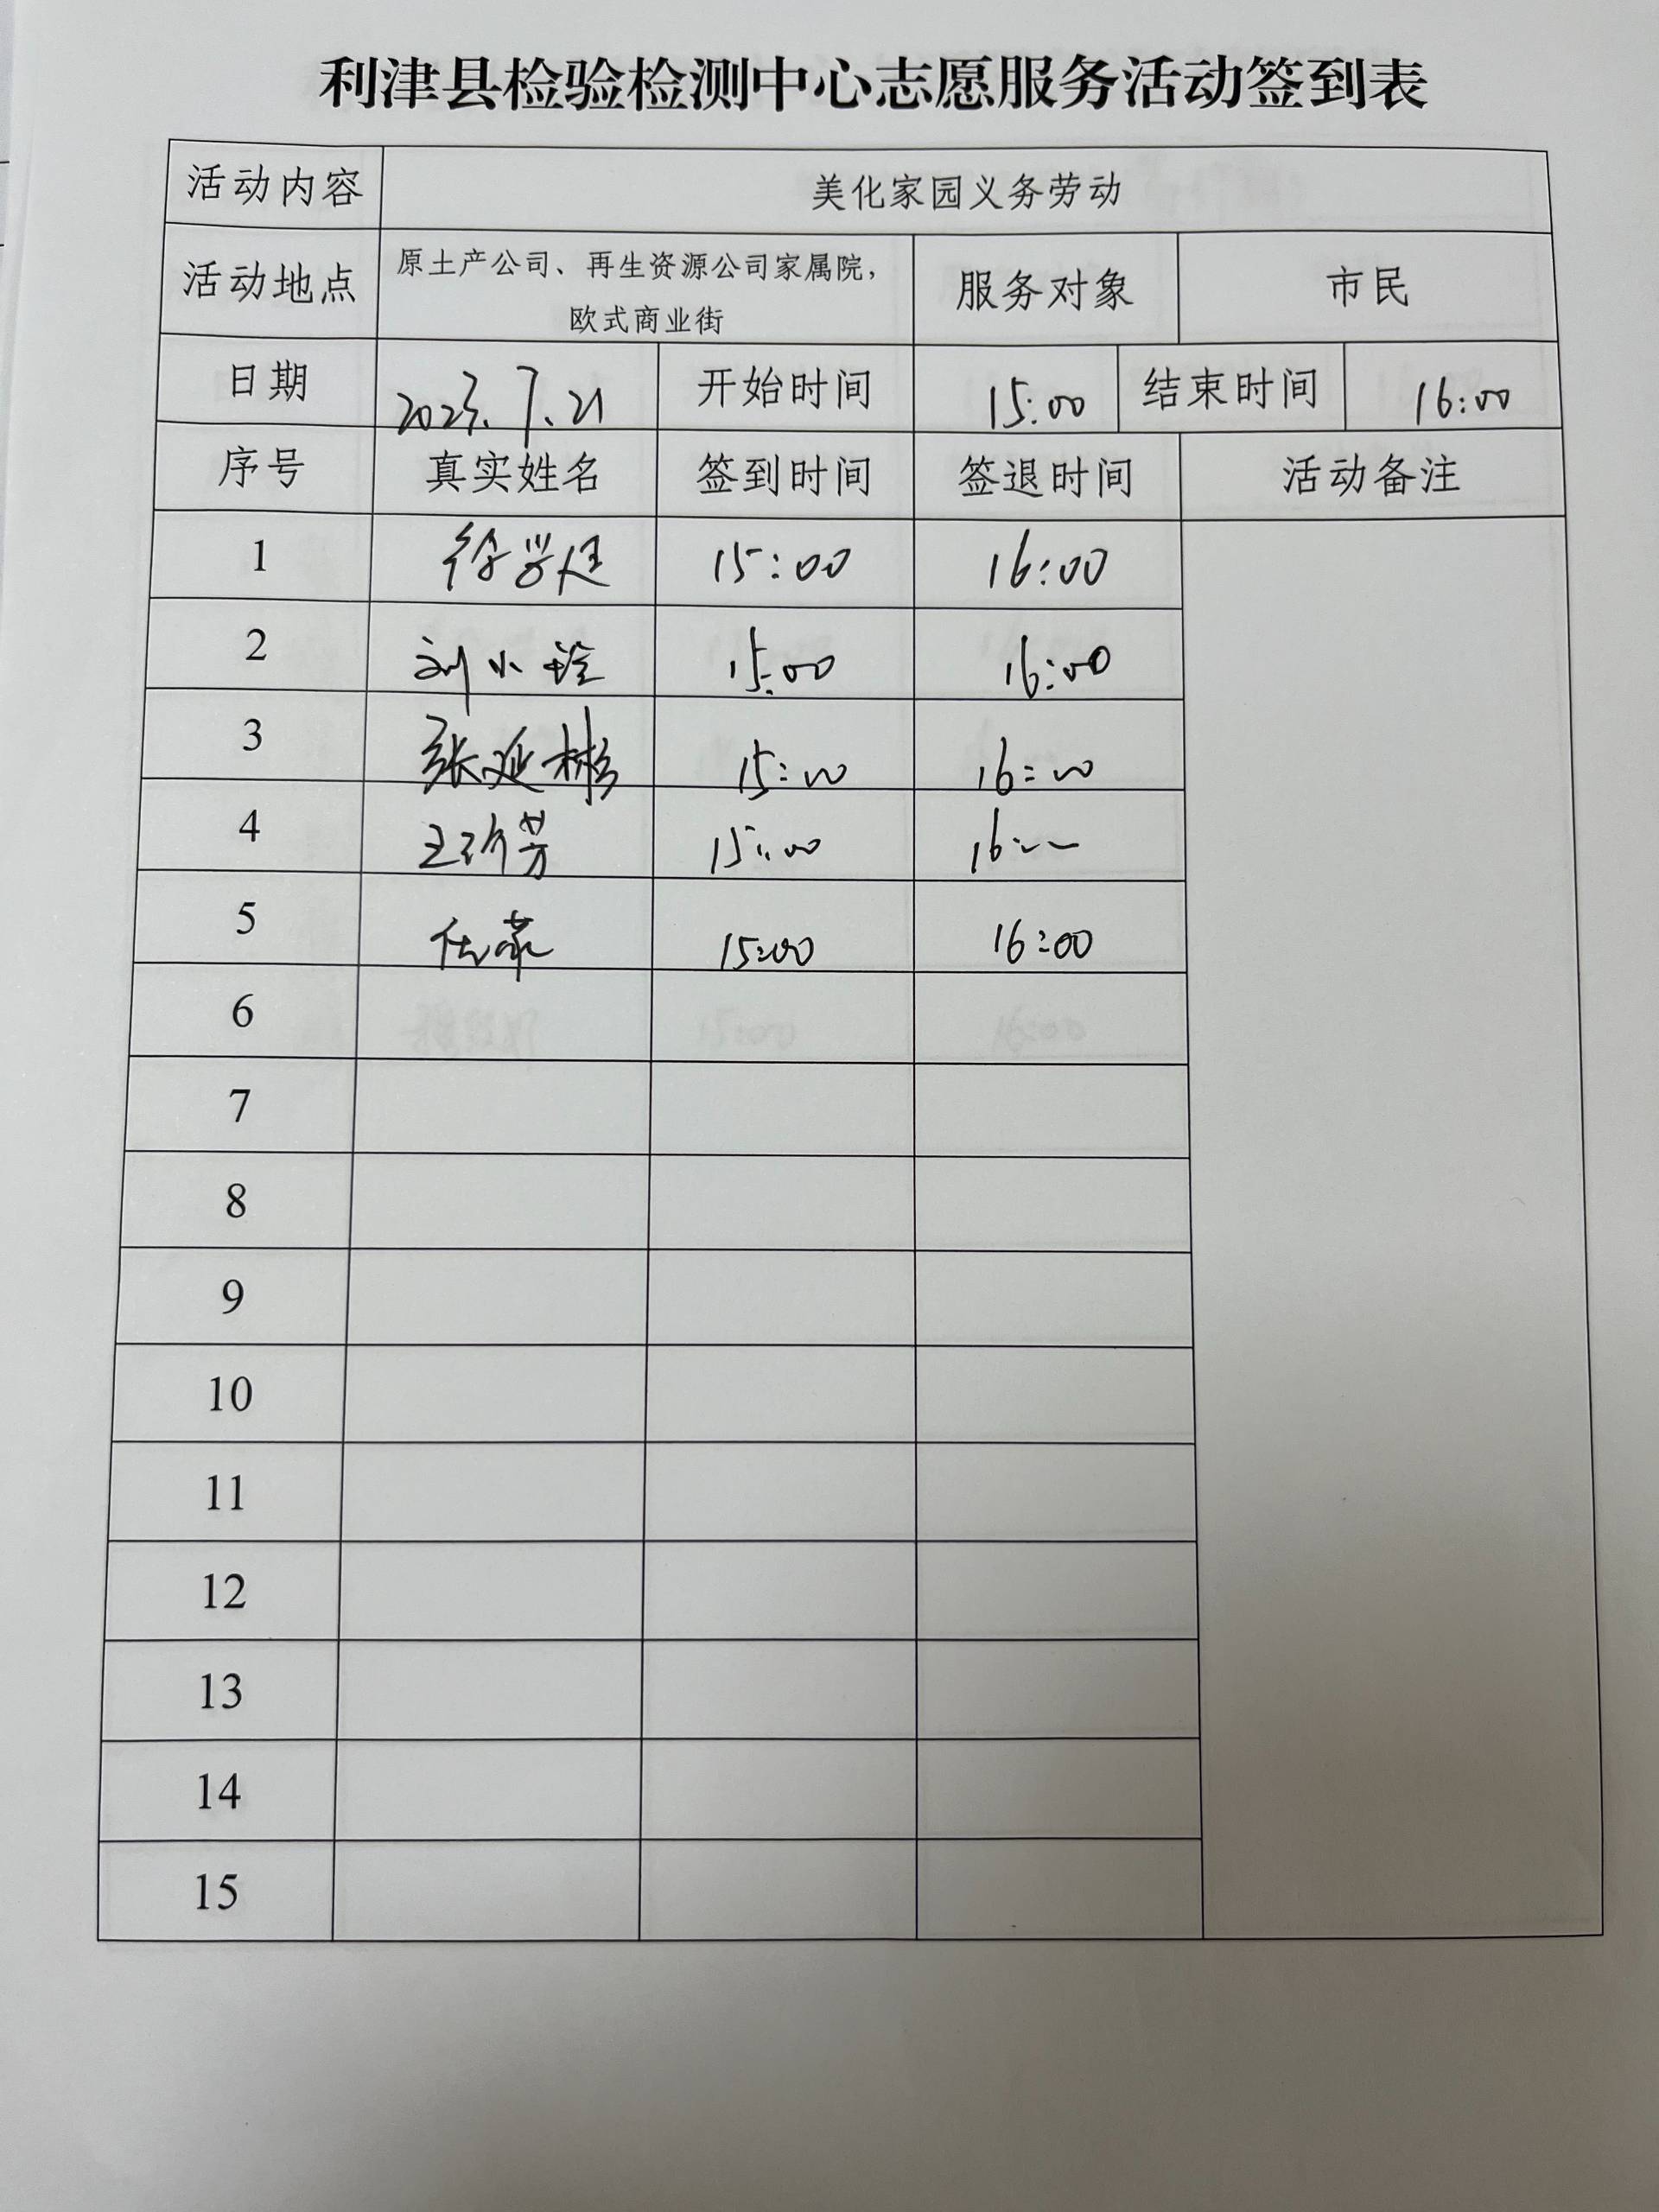 利津县检验检测中心志愿服务活动签到表
活动内容 美化家园义务劳动
活动地点 原土产公司、再生资源公司家属院，
欧式商业街 服务对象 市民
日期 2023.7.21 开始时间 15:00 结束时间 16:00
序号 真实姓名 签到时间 签退时间 活动备注
1 徐学 15:00 16:00
2 刘小 15:00 16:00
3 张延彬 15:00 16:00
4 王 芳 15:00 16:
5 任 15:00 16:00
6
7
8
9
10
11
12
13
14
15